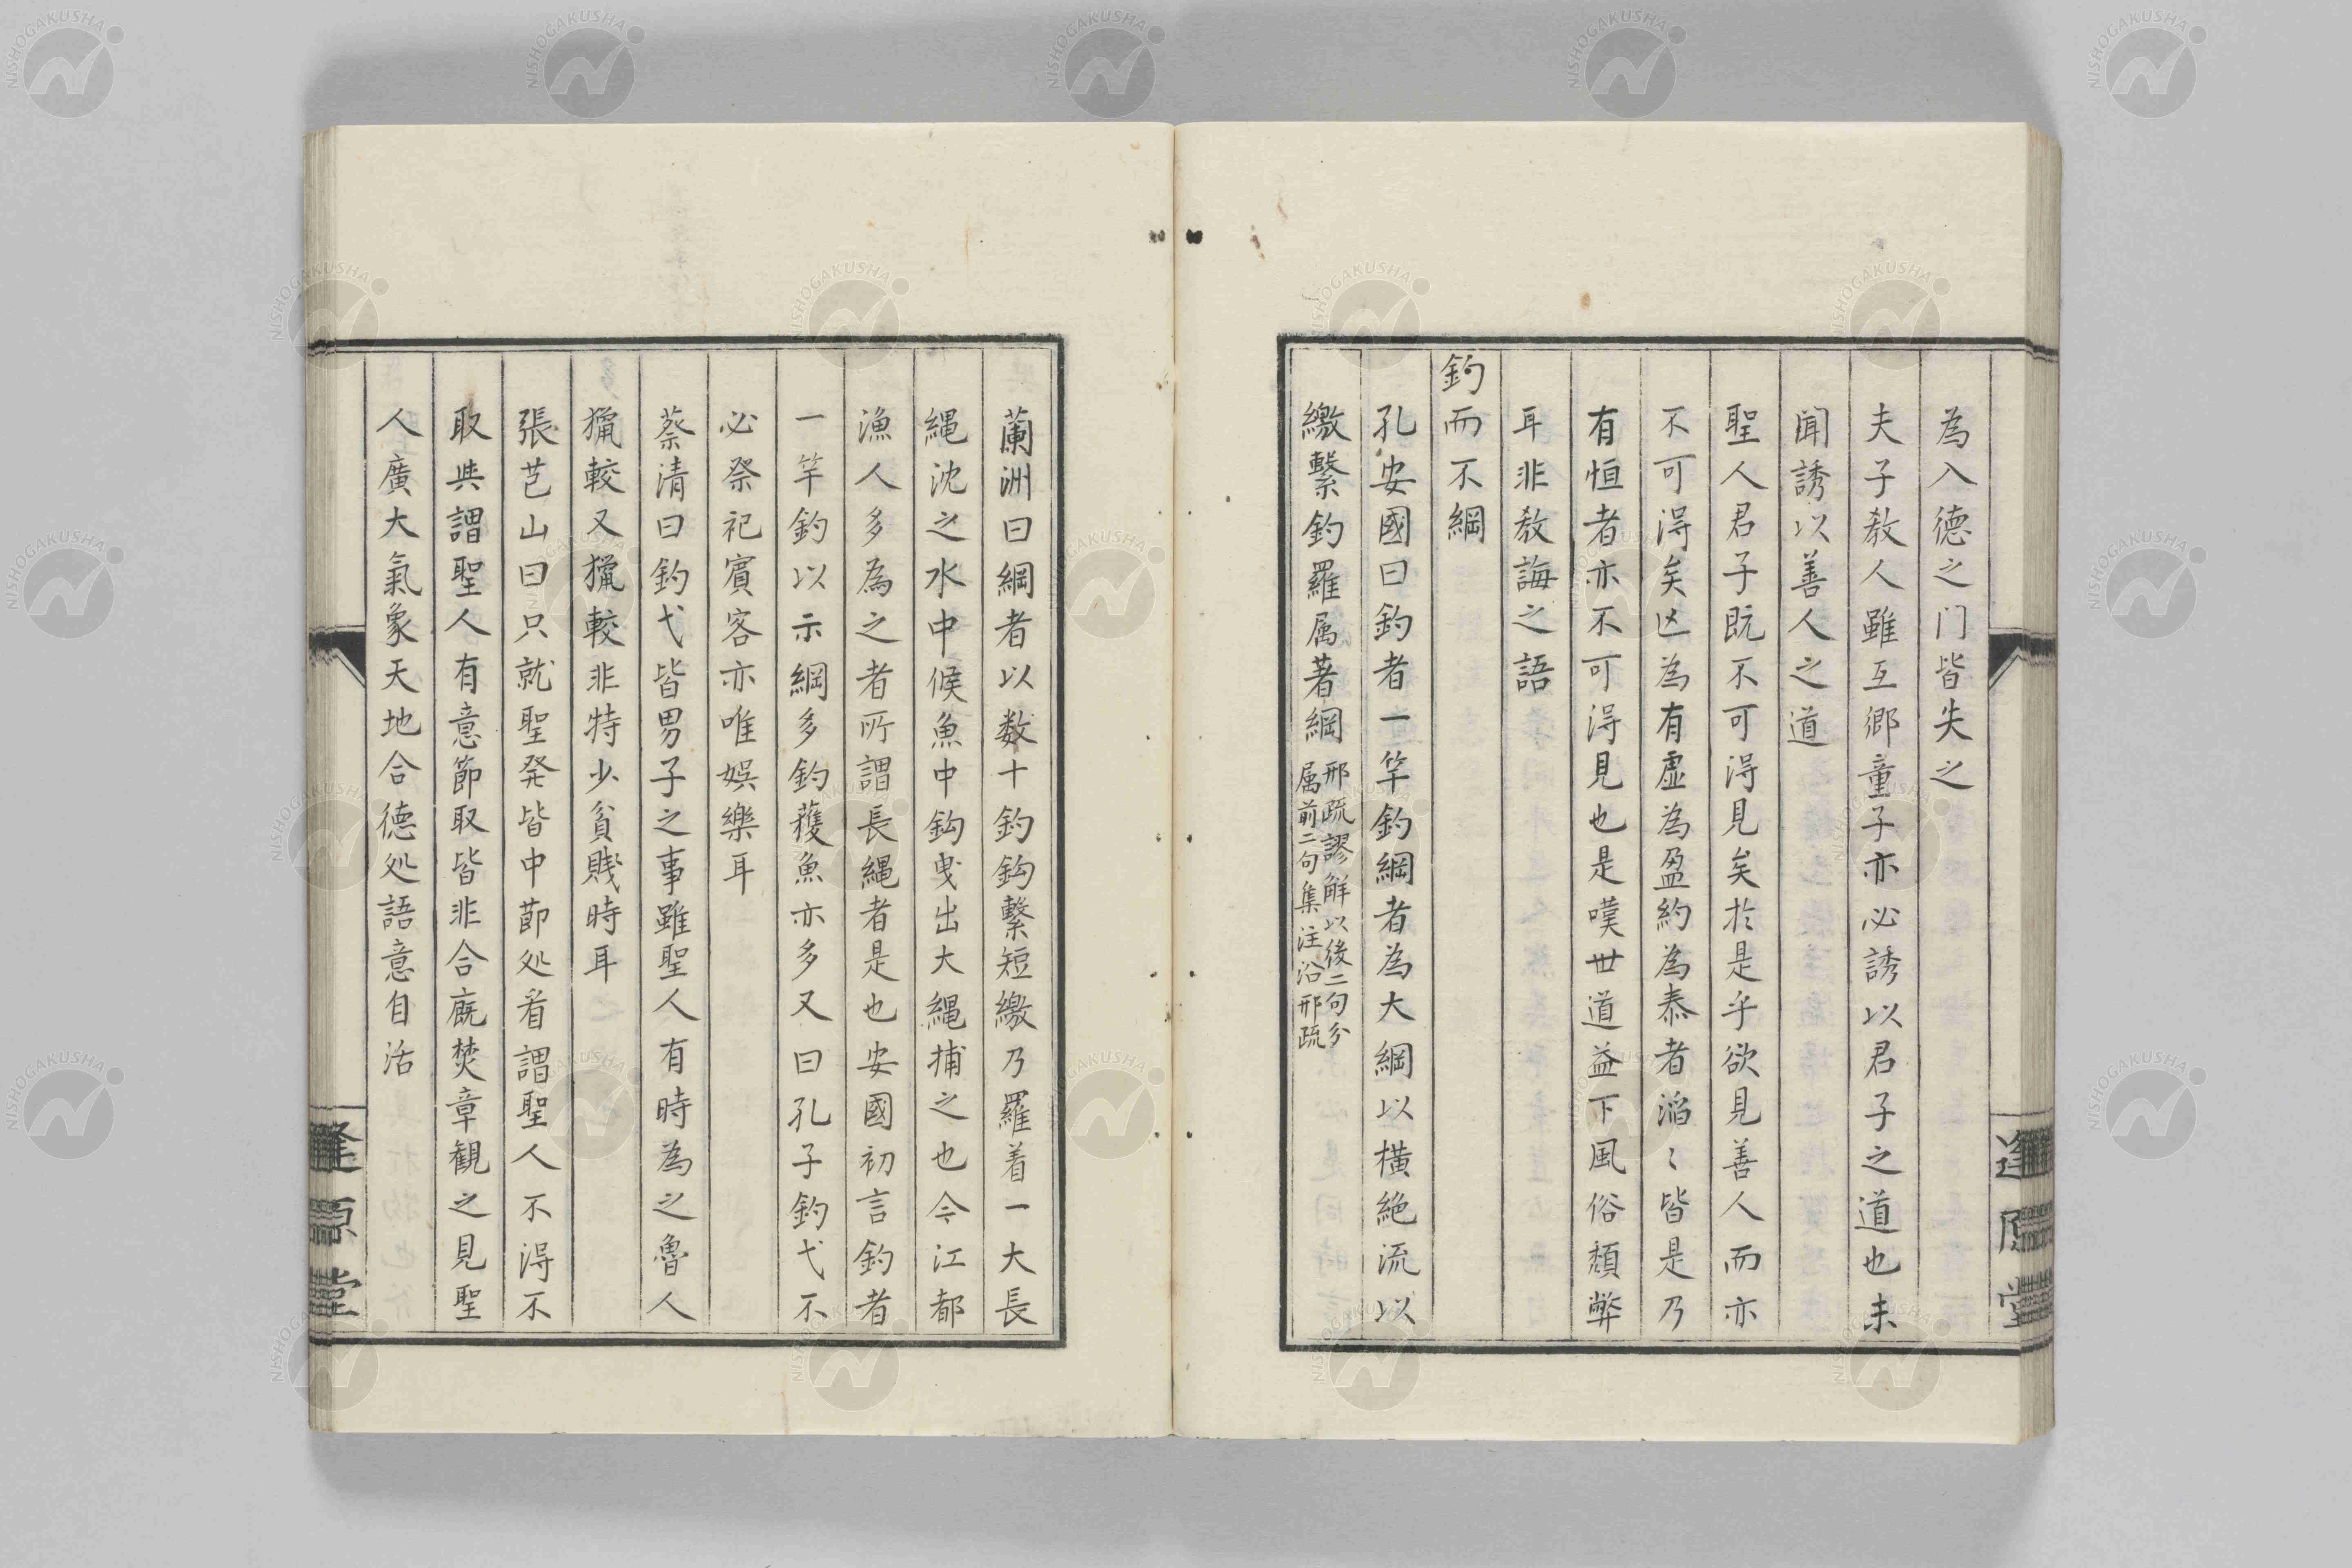 為入德之门皆失之
夫子教人雖互鄉童子亦必誘以君子之道也未
聞誘以善人之道
聖人君子既不可淂見矣扵是乎欲見善人而亦
不可淂矣亾為有虛為盈約為泰者滔〻皆是乃
有恒者亦不可淂見也是嘆丗道益下風俗頽弊
耳非教誨之語
釣而不綱
孔安國曰釣者一竿釣綱者為大綱以横絶流以
繳繫釣羅属著綱 邢疏謬解以後二句分属前二句集注沿邢疏
蘭洲曰綱者以数十釣鈎繫短繳乃羅着一大長
繩沈之水中候魚中鈎曳出大繩捕之也今江都
漁人多為之者所謂長繩者是也安國初言釣者
一竿釣以示綱多釣獲魚亦多又曰孔子釣弋不
必祭祀賔客亦唯娯樂耳
蔡清曰釣弋皆男子之事雖聖人有時為之魯人
獵較又獵較非特少貧賤時耳
張芑山曰只就聖発皆中節处看謂聖人不淂不
取與謂聖人有意節取皆非合廐焚章観之見聖
人廣大氣象天地合德处語意自活
逢原堂
逢原堂
NISHOGAKUSHA